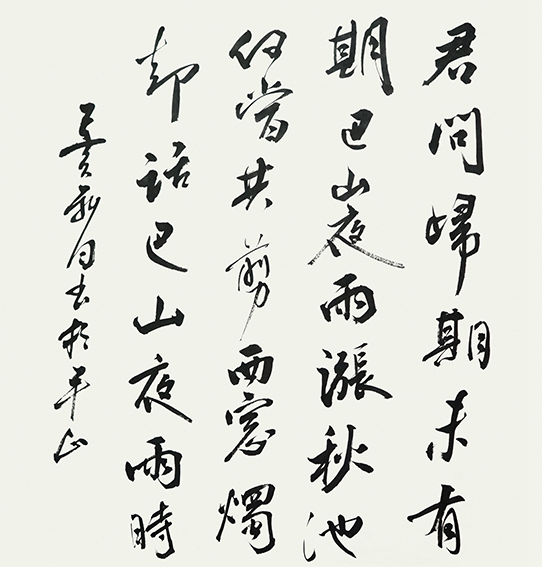 君問歸期未有
期巴山夜雨漲秋池
何當共剪西窗燭
却話巴山夜雨時
己亥新月书於平山